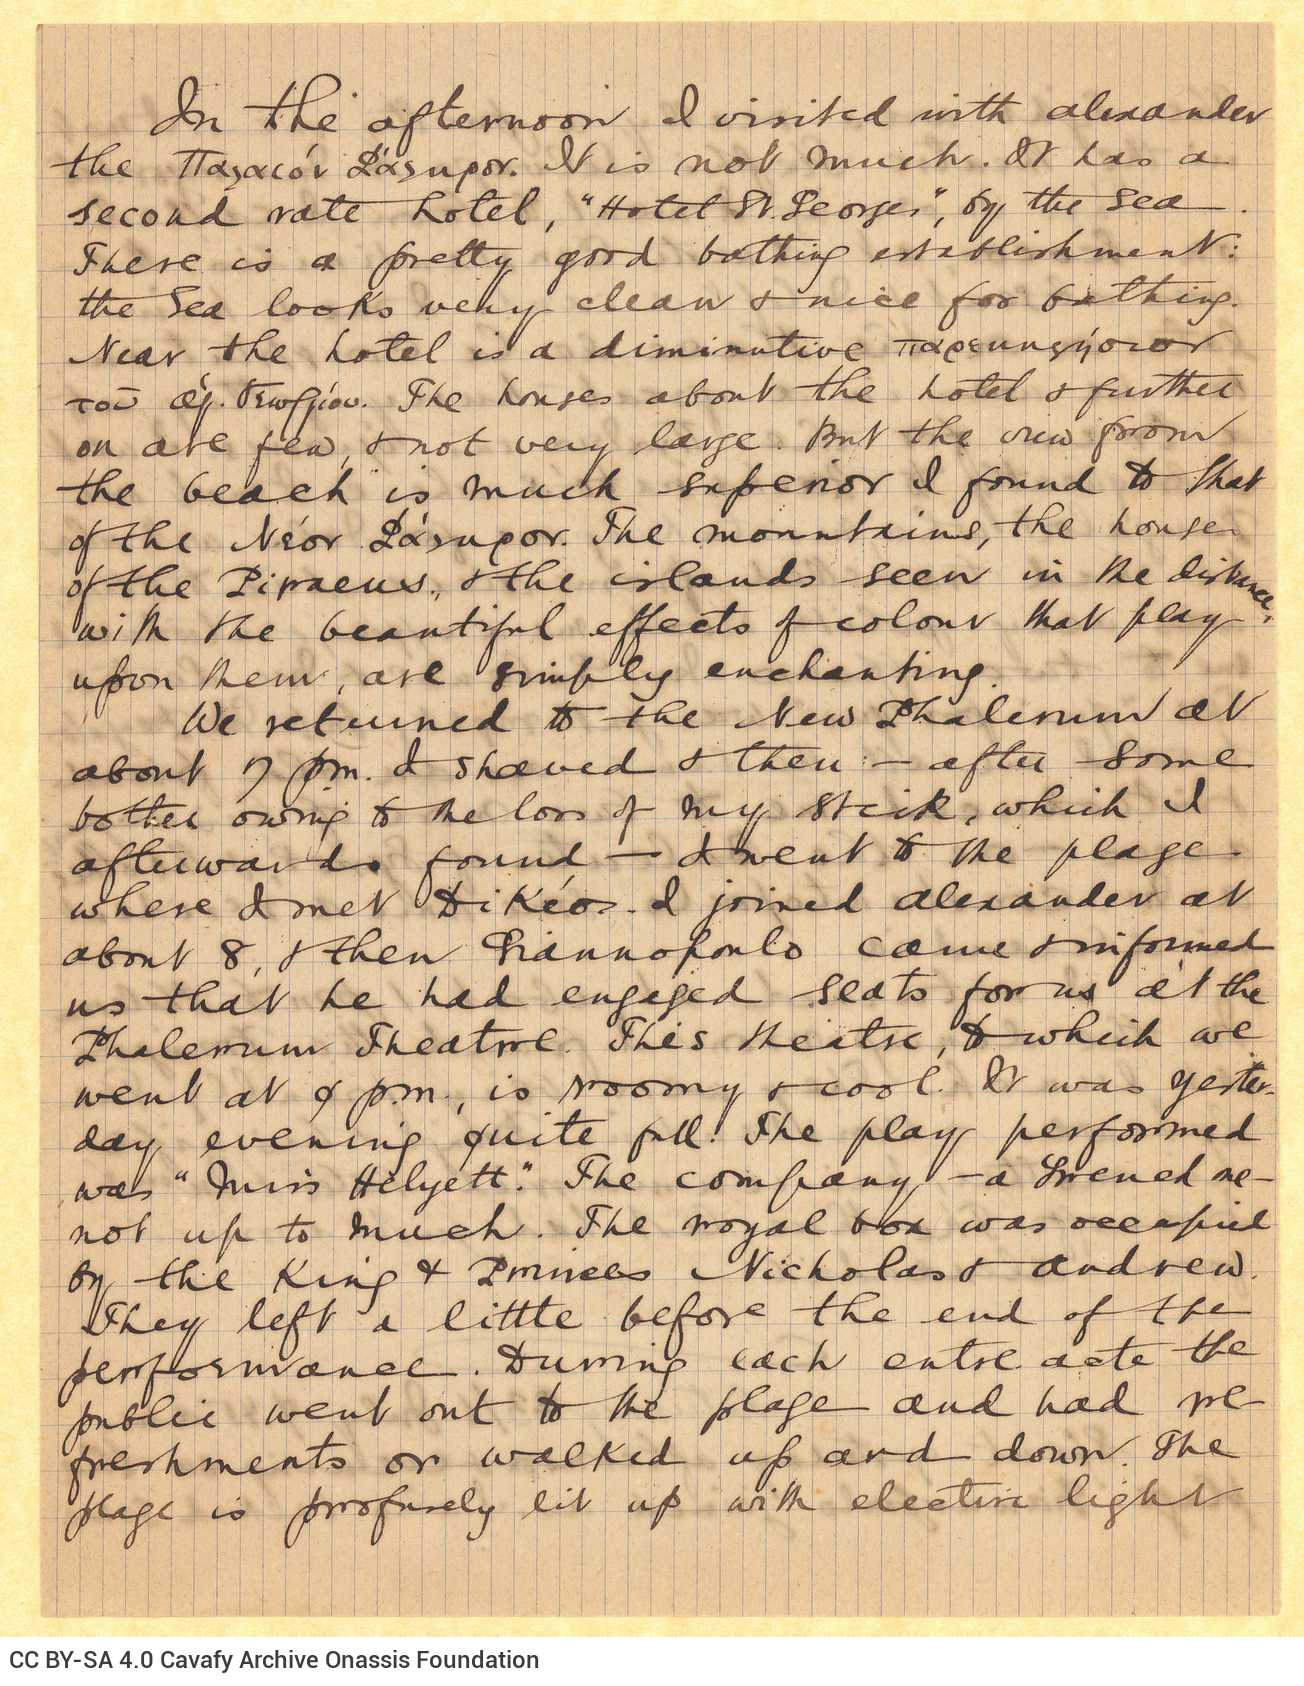 In the afternoon I visited with Alexander
the Παλαιόν Φάληρον. It is not much. It has a
second rate hotel, "Hotel St. Georges", by the sea.
There is a pretty good bathing establishment:
the sea looks very clean & nice for bathing.
Near the hotel is a diminutive παρεκκλήσιον
τοῦ ἁγ. Γεωργίου. The houses about the hotel & further
on are few, & not very large. But the view from
the beach is much superior I found to that
of the Νέον Φάληρον. The mountains, the house
of the Piraeus, & the islands seen in the distance,
with the beautiful effects of colour that play
upon them, are simply enchanting.
We returned to the New Phalerum at
about 7 p.m. I shaved & then — after some
bother owing to the loss of my stick, which I
afterwards found — I went to the plage
where I met Dikéos. I joined Alexander at
about 8, & then Giannopoulo came & informed
us that he had engaged seats for us at the
Phalerum Theatre. This theatre, to which we
went at 9 p.m., is roomy & cool. It was yester-
day evening quite full. The play performed
was "Miss Helyett." The company — a French one —
not up to much. The royal box was occupied
by the King & Princes Nicholas & Andrew.
They left a little before the end of the
performance. During each entre acte the
public went out to the plage and had re
freshments or walked up and down. The
plage is profusely lit up with electric light
CC BY-SA 4.0 Cavafy Archive Onassis Foundation